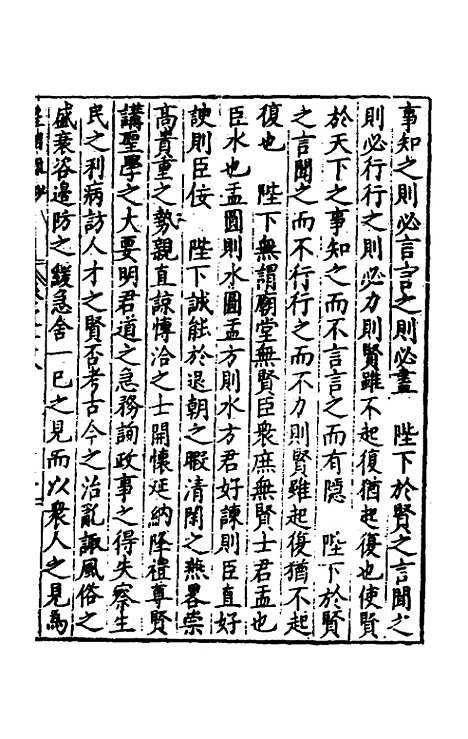 事知之則必言言之則必盡　陛下於賢之言聞之
則必行行之則必力則賢雖不起復猶起復也使賢
於天下之事知之而不言言之而有隱　陛下於賢
之言聞之而不行行之而不力則賢雖起復猶不起
復也　陛下無謂廟堂無賢臣衆庶無賢士君盂也
臣水也盂圓則水圓盂方則水方君好諫則臣直好
諛則臣佞　陛下誠能於退朝之暇清閑之燕畧崇
高貴重之勢親直諒愽洽之士開懷延納降禮尊賢
講聖學之大要明君道之急務詢政事之得失察生
民之利病訪人才之賢否考古今之治亂諏風俗之
盛衰咨邊防之緩急舍一已之見而以衆人之見為